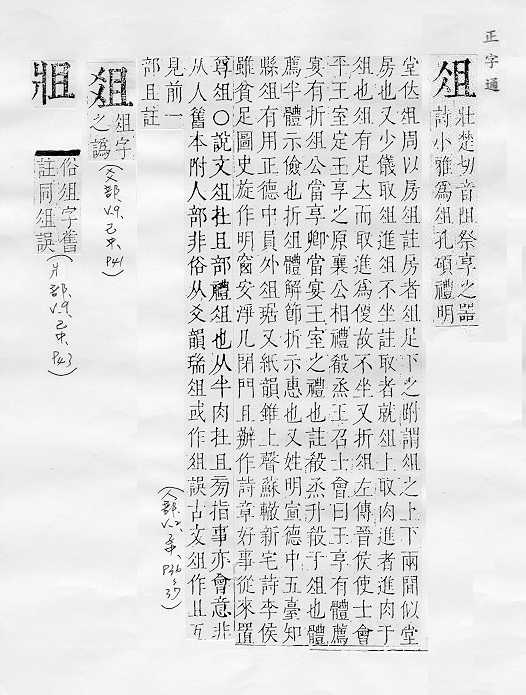 正字通
俎
壯楚切音阻祭享之器
詩小雅為俎孔碩禮明
堂位周以房俎註房者俎足下之跗謂俎之上下兩間似堂
房也又少儀取俎進俎不坐註取者就俎上取肉進者進肉于
俎也俎有足立而取進為便故不坐又折俎左傳晉侯使士會
平王室定王享之原襄公相禮殽烝王召士會曰王享有體薦
宴有折俎公當享卿當宴王室之禮也註殽烝升殽于俎也體
薦半體示儉也折俎體解節折示惠也又姓明宣德中五臺知
縣俎有用正德中員外俎琚又紙韻錐上聲蘇轍新宅詩李侯
雖貧足圖史旋作明窗安淨几閉門且辦作詩章好事從來置
尊俎〇說文俎在且部禮俎也从半肉在且旁指事亦會意非
从人舊本附人部非俗从爻韻瑞俎或作俎誤古文俎作且互
見前一
部且註
俎字
之譌
(爻部
V.9、
P41
俗俎字舊
註同俎誤
(爿部、
V.9、
P43
(人部、V.2、
P36
37)